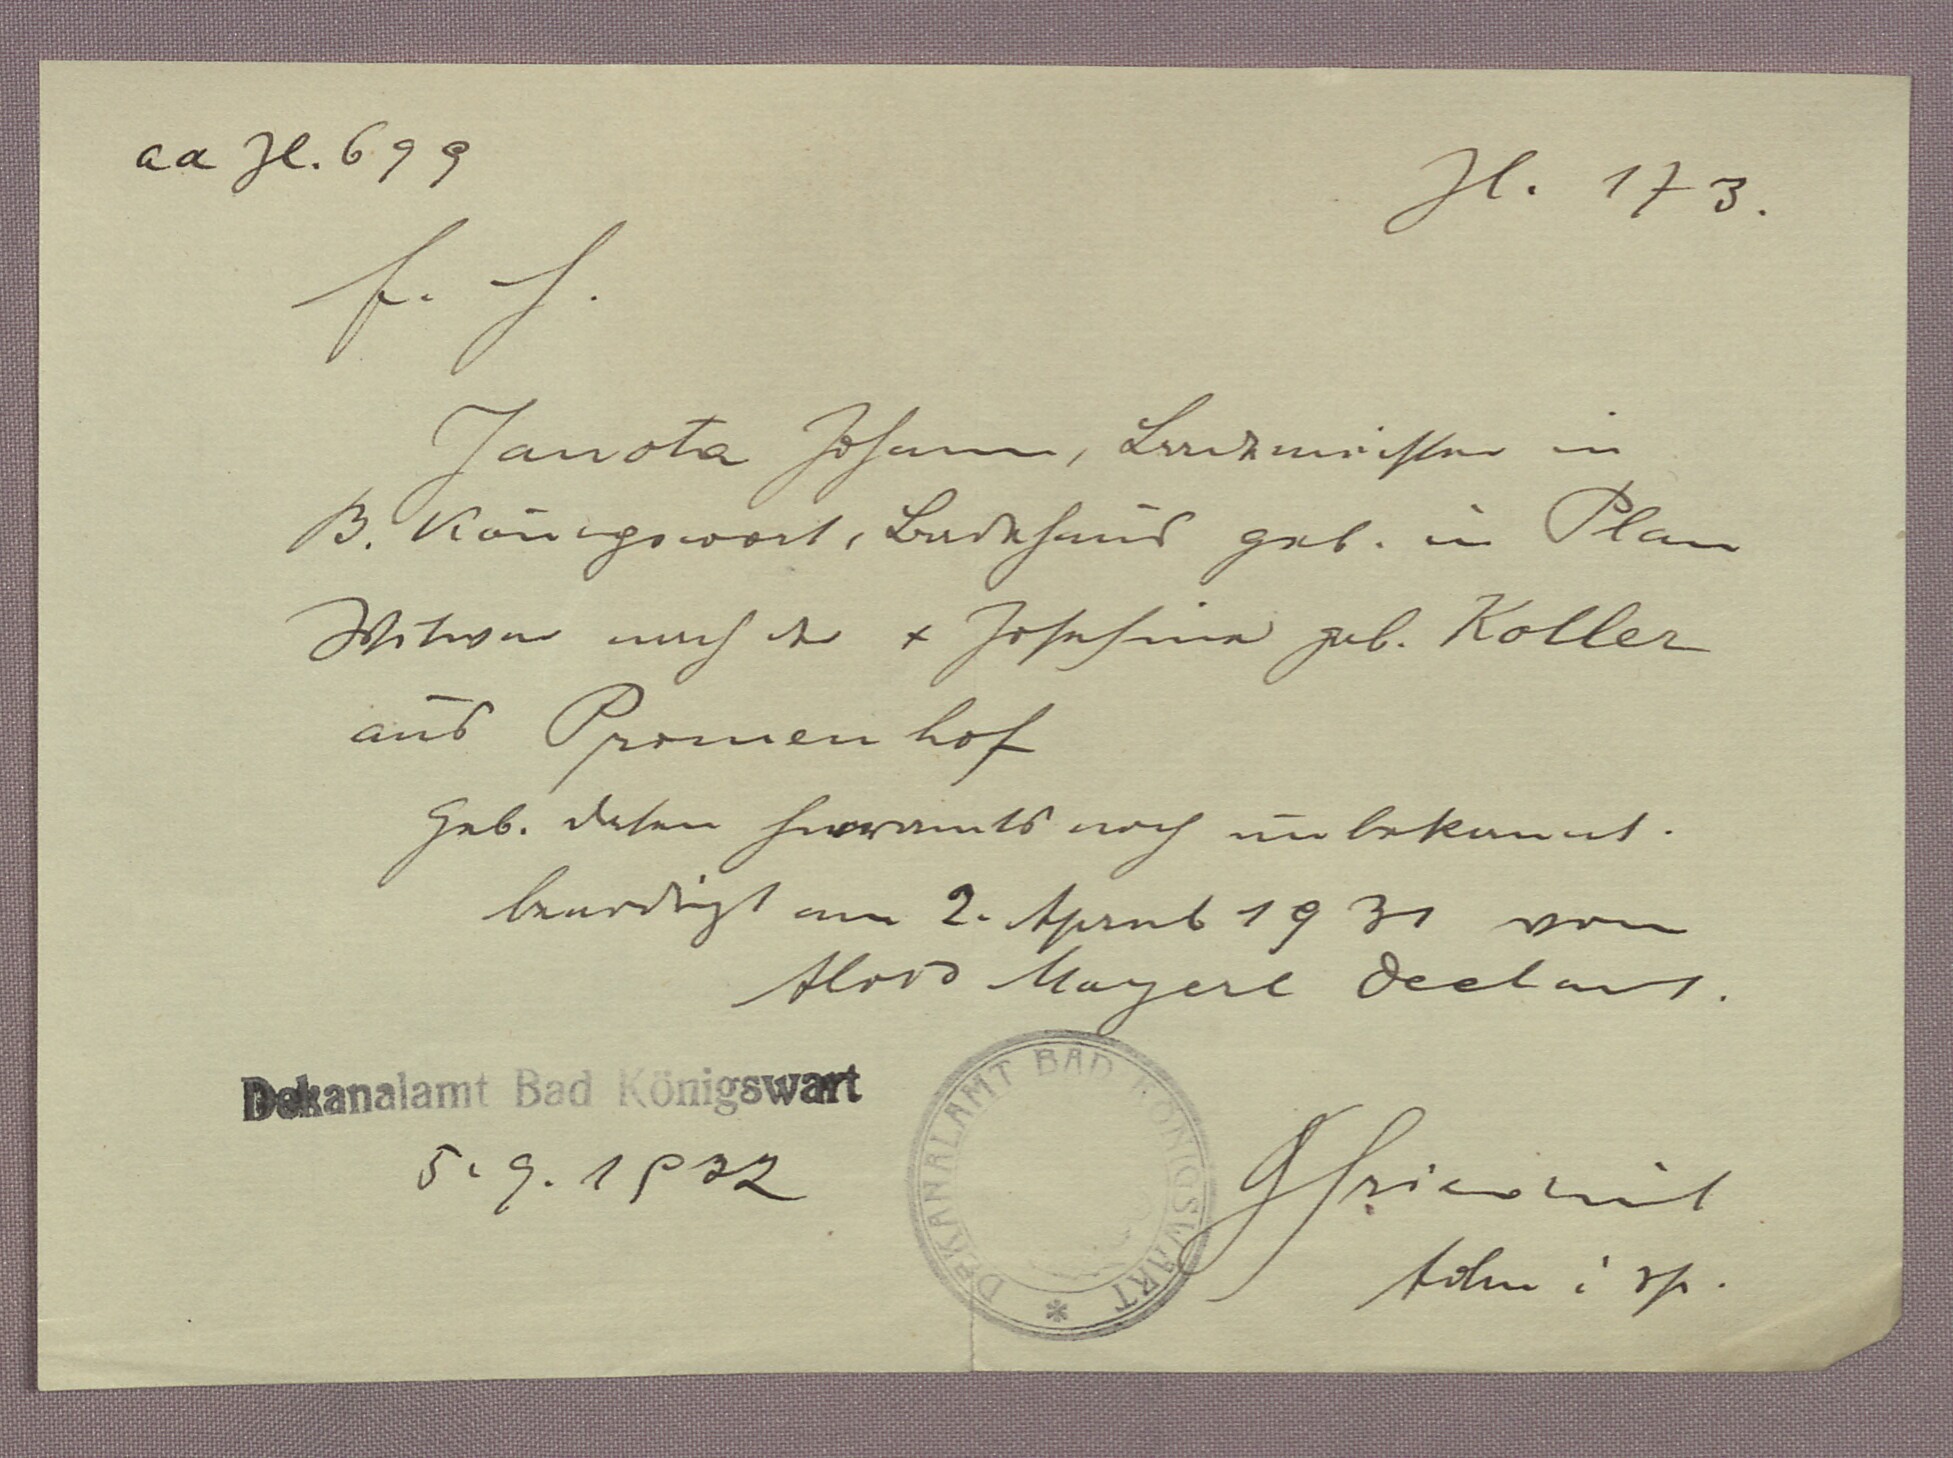 ad Zl. 699
Zl. 173.
Janota Johann, Bademeister in
B. Königswart, Badehaus geb. in Plan
Witwer nach der + Josefine geb. Koller
aus Promenhof
Geb. daten hieramts noch unbekannt.
beerdigt am 2. April 1931 von
Alois Mayerl Dechant.
Dekanalamt Bad Königswart
DEKANALAMT BAD KÖNIGSWART *
5. 9. 1932
Adm i sp.